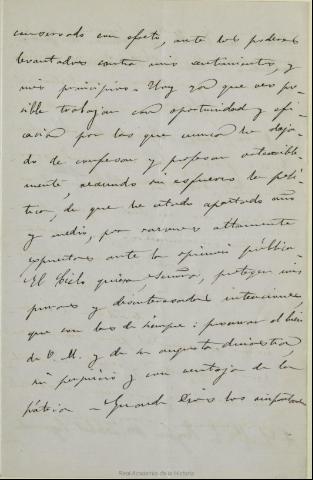 conservado con afecto, ante los poderes
levantados contra mis sentimientos, y
mis principios. Hoy ya que veo po-
sible trabajar con oportunidad y efi-
cacia por los que nunca he deja-
do de confesar y profesar ostensible-
mente, reanudo mi esfuerzo la polí-
tica, de que he estado apartado año
y medio, por razones altamente
ante la opinión pública.
El Cielo quiera, Señora, proteger mis
puras y desinteresadas intenciones,
que son las de siempre: procurar el bien
de V. M. y de su augusta dinastía,
sin perjuicio y con ventaja de la
pátria. Guarde Dios los importantes
Real Academia de la Historia